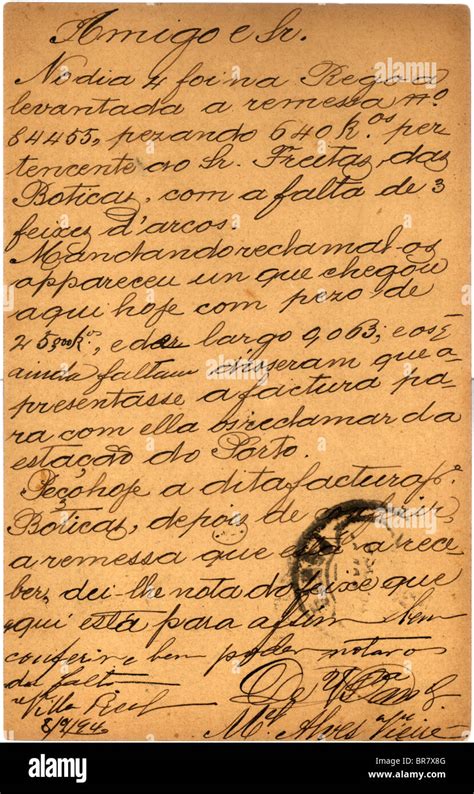 Amigo e Sr.
No dia 4 foi na Regoa
levantada a remessa nº
64455, pezando 640 k.os per
tencente ao Sr. Freitas, das
Boticas, com a falta de 3
feixes d'arcos.
Mandando reclamal-os
appareceu un que chegou
aqui hoje com pezo de
25 k.os, e de largo 0,063; e os
ainda faltam disseram que a
presentasse a factura pa
ra com ella os reclamar da
estação do Porto.
Peço hoje a dita factura pª
Boticas, depois de
a remessa que está a rece
ber, dei-lhe nota do feixe que
aqui está para a fim bem
conferir e bem poder notar os
da falta
Villa Real
8/9/94
De V.
M.el Alves
alamy
Image ID: BR7X8G
www.alamy.com